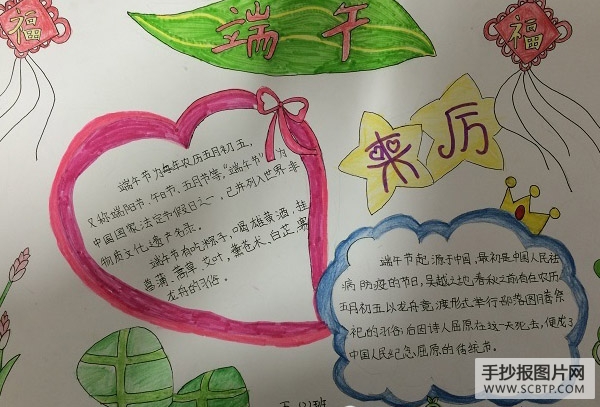 福
端午
福
来历
端午节为每年农历五月初五,
又称端阳节、午日节、五月节等,“端午节”为
中国国家法定节假日之一,已并列入世界非
物质文化遗产名录。
端午节有吃粽子,喝雄黄酒,挂
菖蒲、蒿草、艾叶,薰苍术、白芷,赛
龙舟的习俗。
端午节起源于中国,最初是中国人民祛
病防疫的节日,吴越之地春秋之前有在农历
五月初五以龙舟竞渡形式举行部落图腾祭
祀的习俗;后因诗人屈原在这一天死去,便成了
中国人民纪念屈原的传统节。
手抄报图片网
WWW.SCBTP.COM